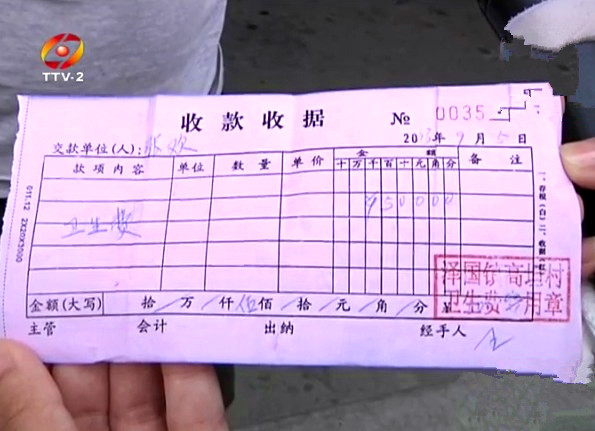 TTV-2
收款收据 № 0035
交款单位(人): 张欢 2013年9月5日
款项内容 单位 数量 单价 金额 备注
十万千百十元角分
¥50000
卫生费
011-12
一、存根(白)二、收据(红)
泽国镇高坦村
卫生费专用章
金额(大写) 拾 万 仟 伍佰 拾 元 角 分 ¥
主管 会计 出纳 经手人